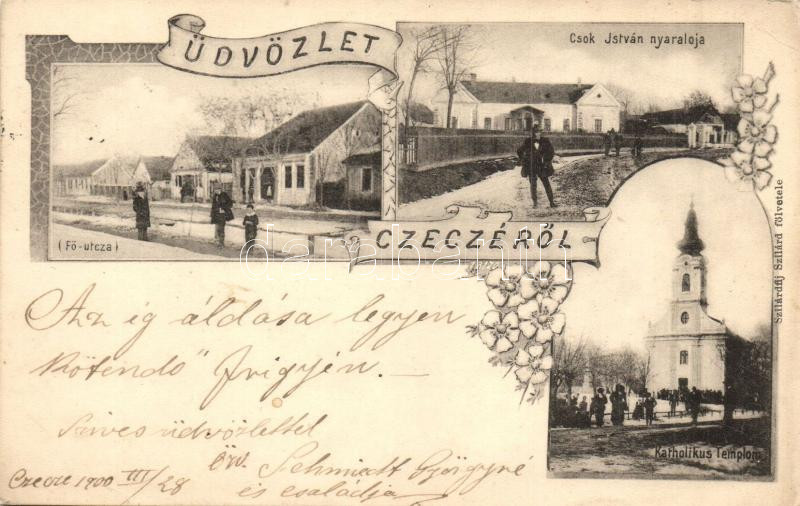 ÜDVÖZLET
Csok István nyaraloja
(Fő-utcza)
CZECZÉRŐL
Szilárdfij Szilárd fölvetele
Katholikus Templom
Az ég áldása legyen
frigyén. —
Szives üdvözlettel
özv. Schmiedt Györgyné
és családja
Czecze 1900 III/28